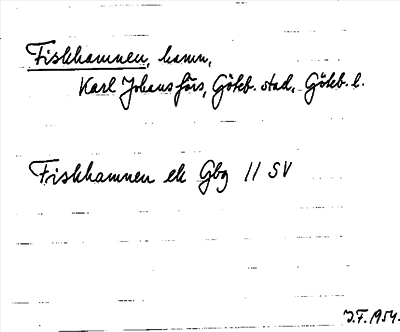 Fiskhamnen, hamn,
Karl Johans förs, Göteb. stad, Göteb. l.
Fiskhamnen ek Gbg 11 SV
J.F. 1954.